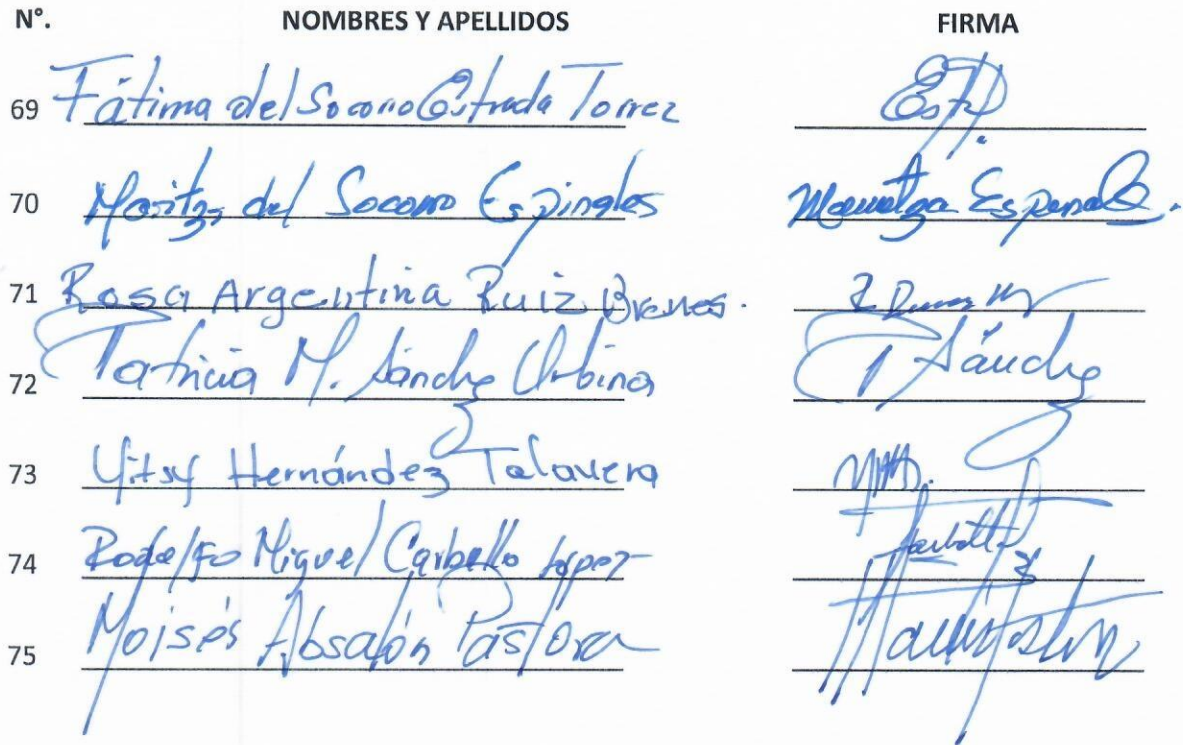 N°. NOMBRES Y APELLIDOS FIRMA
69 Fátima del Socorro Estrada Torrez
70 Maritza del Socorro Espinales
71 Rosa Argentina Ruiz Brenes.
72 Patricia M. Sánchez Urbina P Sánchez
73 Yitsy Hernández Talavera
74 Rodolfo Miguel Carballo López
75 Moisés Absalón Pastora